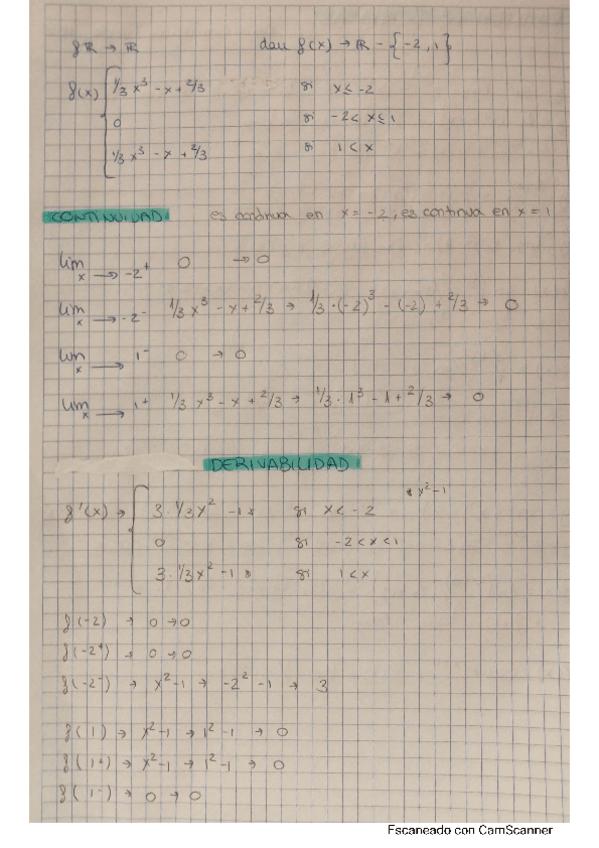 f R → R dom f(x) → R - {-2, 1}
f(x) { 1/3 x³ - x + 2/3 si x ≤ -2
0 si -2 < x ≤ 1
1/3 x³ - x + 2/3 si 1 < x
CONTINUIDAD es continua en x = -2, es continua en x = 1
lim x → -2⁺ 0 → 0
lim x → -2⁻ 1/3 x³ - x + 2/3 → 1/3 · (-2)³ - (-2) + 2/3 → 0
lim x → 1⁻ 0 → 0
lim x → 1⁺ 1/3 x³ - x + 2/3 → 1/3 · 1³ - 1 + 2/3 → 0
DERIVABILIDAD
* x² - 1
f'(x) → { 3 · 1/3 x² - 1 * si x < -2
0 si -2 < x < 1
3 · 1/3 x² - 1 * si 1 < x
f(-2) → 0 → 0
f(-2⁺) → 0 → 0
f(-2⁻) → x² - 1 → -2² - 1 → 3
f(1) → x² - 1 → 1² - 1 → 0
f(1⁺) → x² - 1 → 1² - 1 → 0
f(1⁻) → 0 → 0
Escaneado con CamScanner